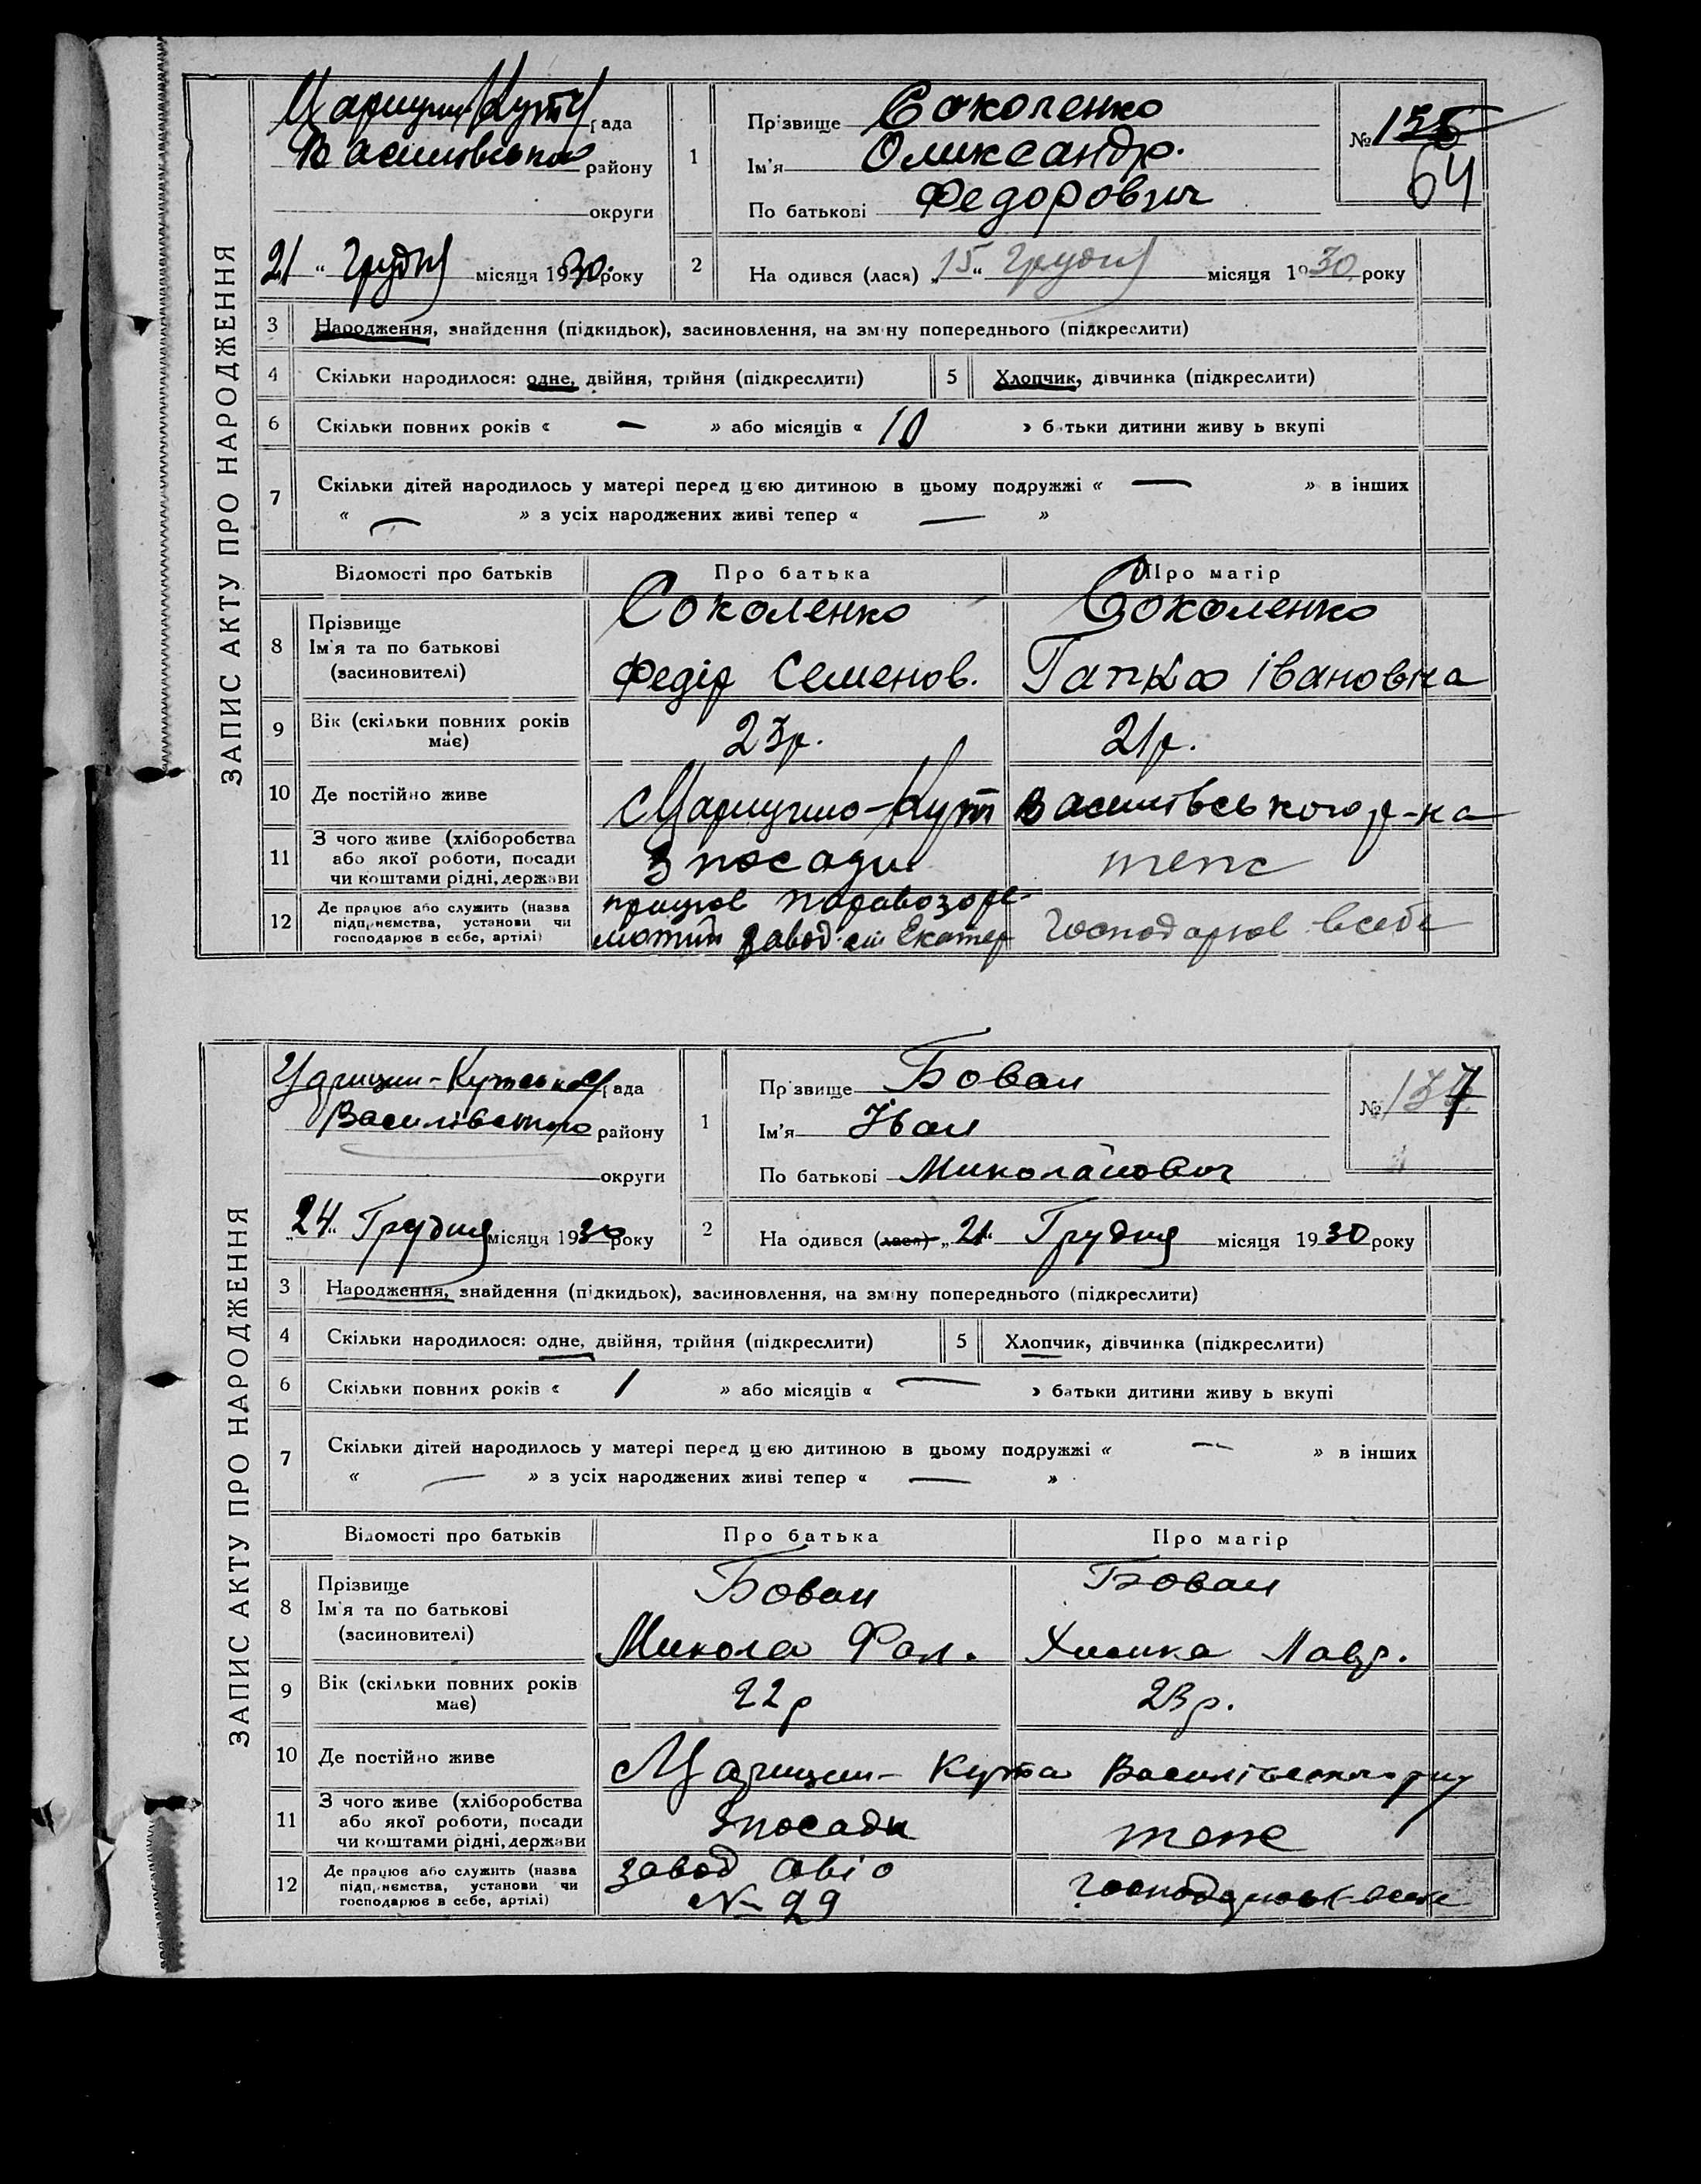 ЗАПИС АКТУ ПРО НАРОДЖЕННЯ
Рада
району
округи
21 " Грудня місяця 1930 року
1
Прізвище Соколенко
Ім'я Оликсандр.
По батькові Федорович
№ 64
2 На одився (лася) „15" Грудня місяця 1930 року
3 Народження, знайдення (підкидьок), засиновлення, на зміну попереднього (підкреслити)
4 Скільки народилося: одне, двійня, трійня (підкреслити) 5 Хлопчик, дівчинка (підкреслити)
6 Скільки повних років « — » або місяців « 10 » батьки дитини живу ь вкупі
7 Скільки дітей народилось у матері перед цією дитиною в цьому подружжі « — » в інших
« — » з усіх народжених живі тепер « — »
Відомості про батьків Про батька Про матір
8 Прізвище
Ім'я та по батькові
(засиновителі)
Соколенко Соколенко
Федір Семенов. Гапка Івановна
9 Вік (скільки повних років має) 23р. 21р.
10 Де постійно живе Царицино-Кут Василівського р-на
11 З чого живе (хліборобства
або якої роботи, посади
чи коштами рідні, держави
З посади теж
12 Де працює або служить (назва
підприємства, установи чи
господарює в себе, артілі)
працює паравозоре-
мотний завод Екатер Господарює в себе
ЗАПИС АКТУ ПРО НАРОДЖЕННЯ
Царицин-Кутська Рада
Василівського району
округи
„24" Грудня місяця 1930 року
1
Прізвище Бован
Ім'я Іван
По батькові Миколайович
№ 137
2 На одився (лася) „21" Грудня місяця 1930 року
3 Народження, знайдення (підкидьок), засиновлення, на зміну попереднього (підкреслити)
4 Скільки народилося: одне, двійня, трійня (підкреслити) 5 Хлопчик, дівчинка (підкреслити)
6 Скільки повних років « 1 » або місяців « — » батьки дитини живу ь вкупі
7 Скільки дітей народилось у матері перед цією дитиною в цьому подружжі « — » в інших
« — » з усіх народжених живі тепер « — »
Відомості про батьків Про батька Про матір
8 Прізвище
Ім'я та по батькові
(засиновителі)
Бован Бован
Микола Лавр.
9 Вік (скільки повних років має) 22р 23р.
10 Де постійно живе Царицин-Кута Василівського р-ну
11 З чого живе (хліборобства
або якої роботи, посади
чи коштами рідні, держави
З посади теж
12 Де працює або служить (назва
підприємства, установи чи
господарює в себе, артілі)
завод авіо
№ 29